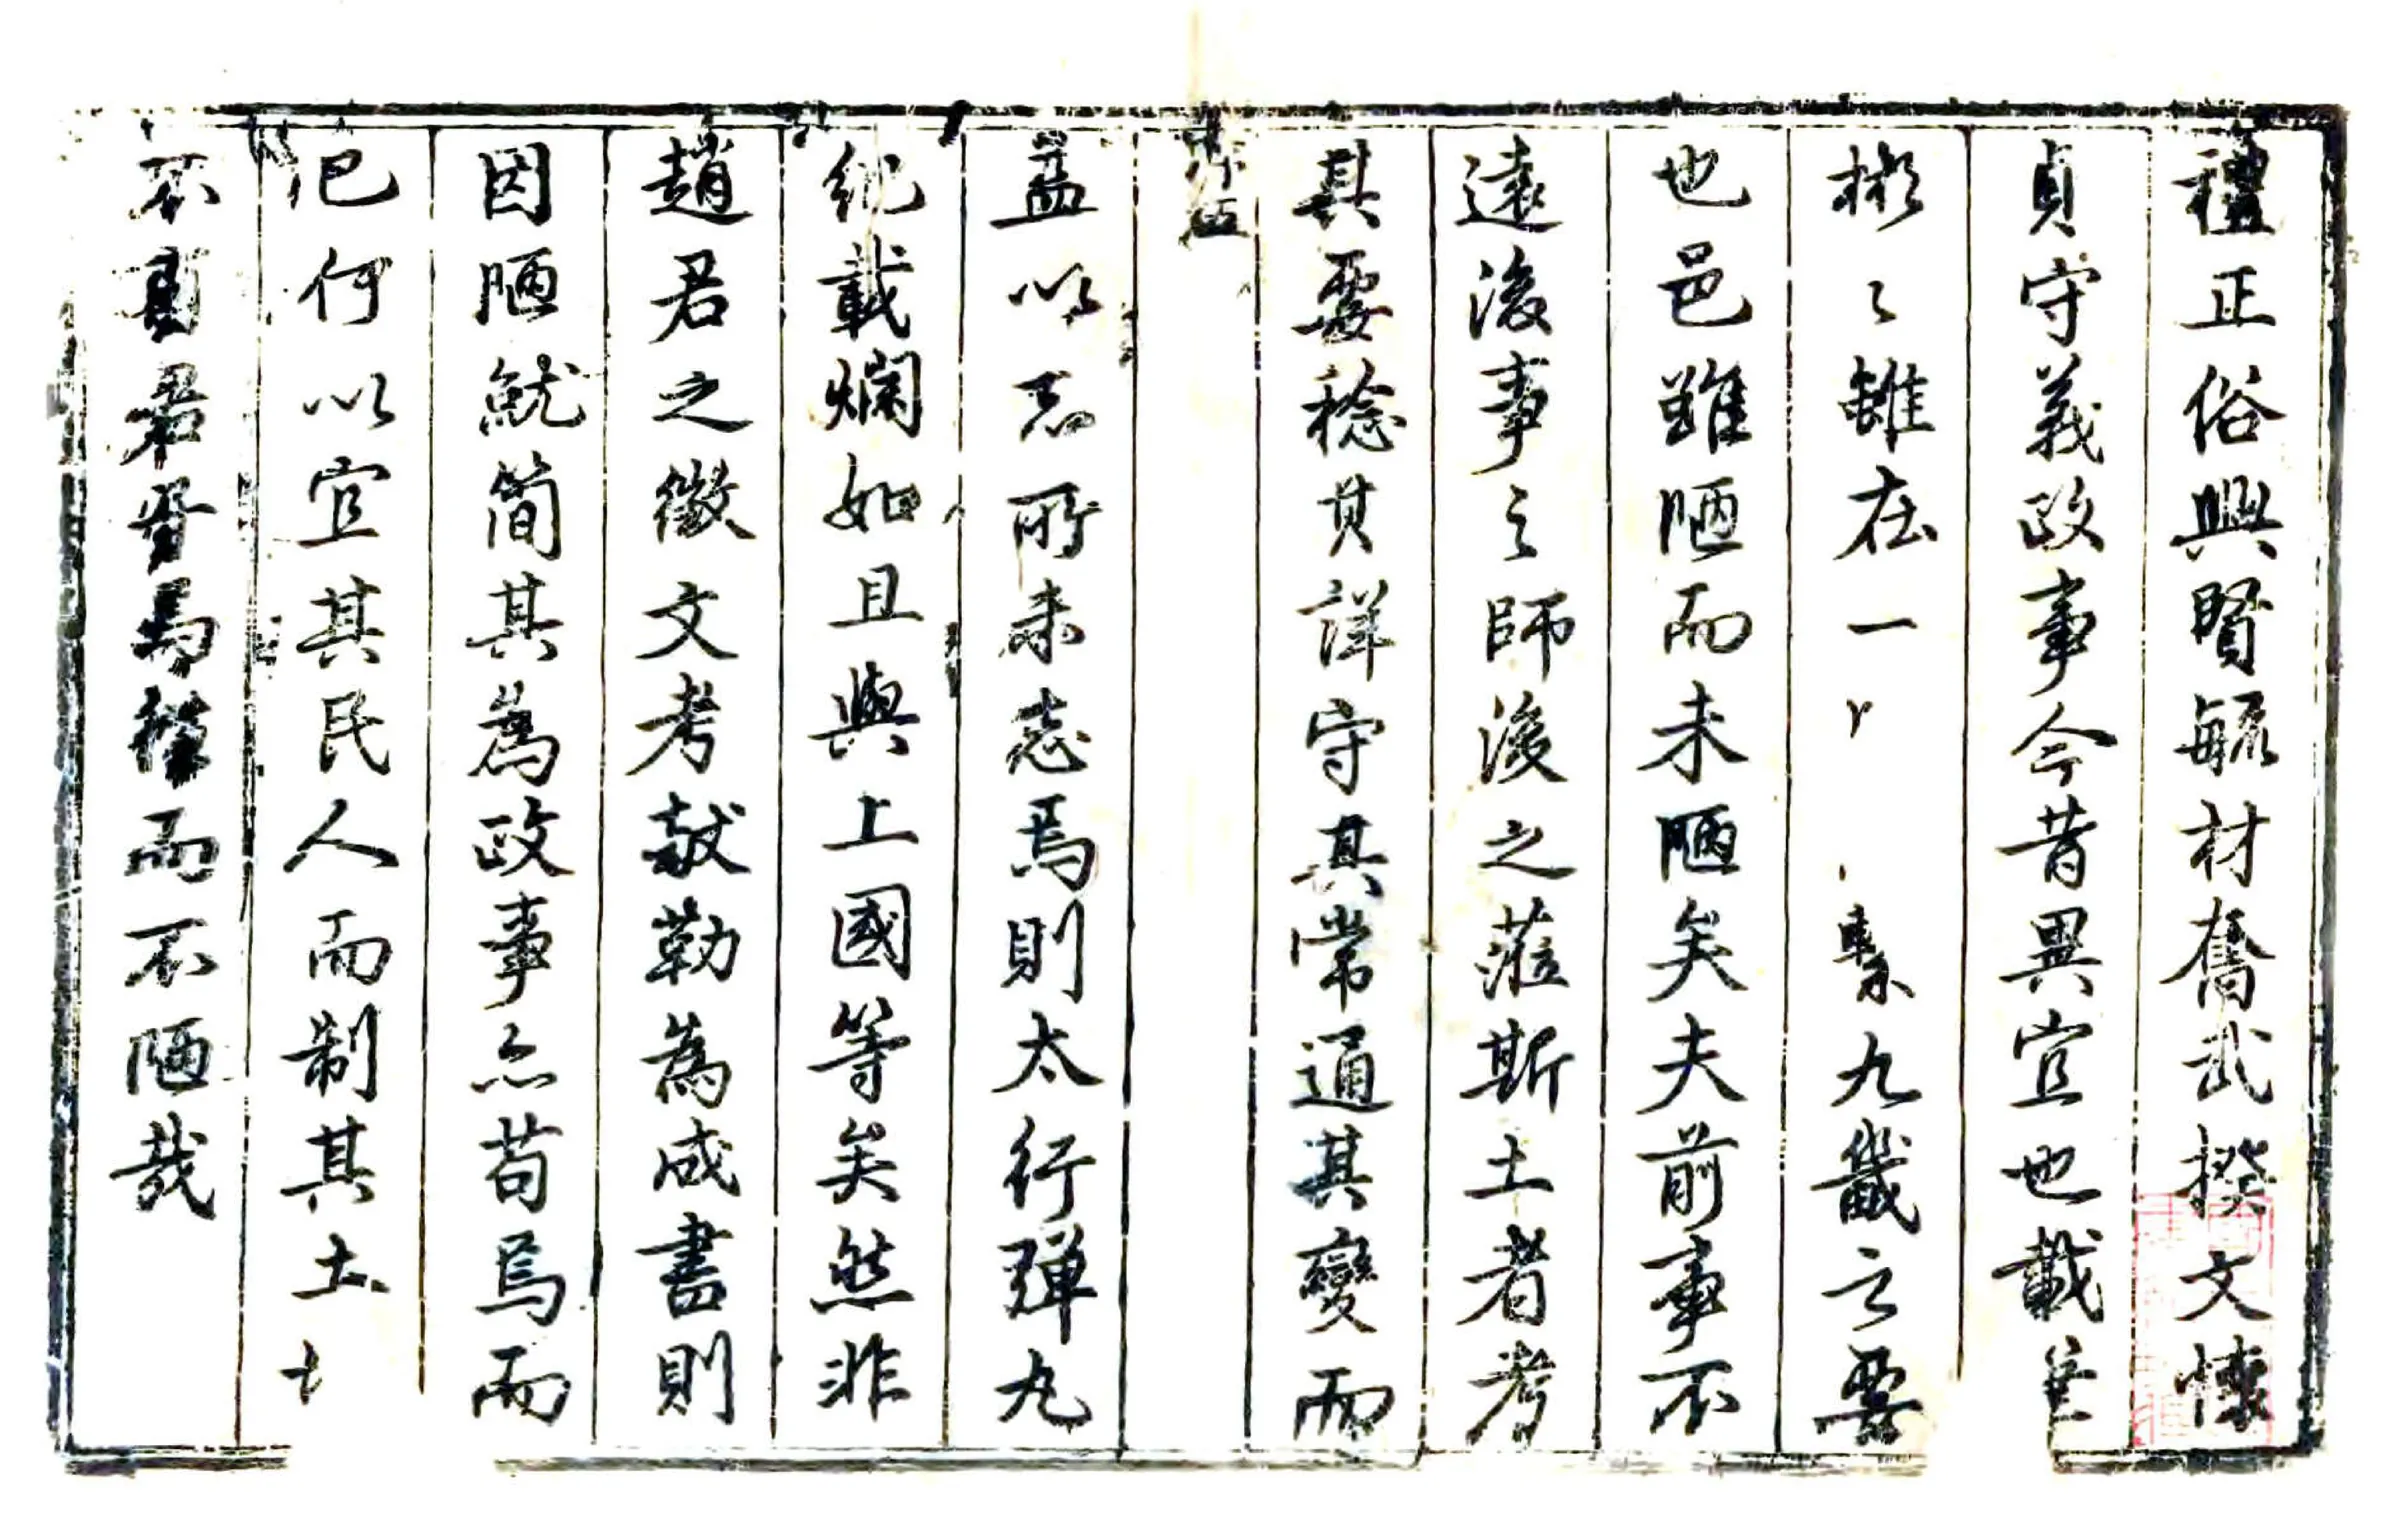 禮正俗興賢毓材奮武揆文懷
貞守義政事今昔異宜也載筆
彬〻雖在一 繫九畿之要
也邑雖陋而未陋矣夫前事不
遠後事之師後之蒞斯土者考
其要稔其詳守其常通其變而
益以志所未志焉則太行彈丸
紀載爛如且與上國等矣然非
趙君之徵文考献勒為成書則
因陋就簡其為政事亦苟焉而
已何以宜其民人而制其土
不
焉 而不陋哉